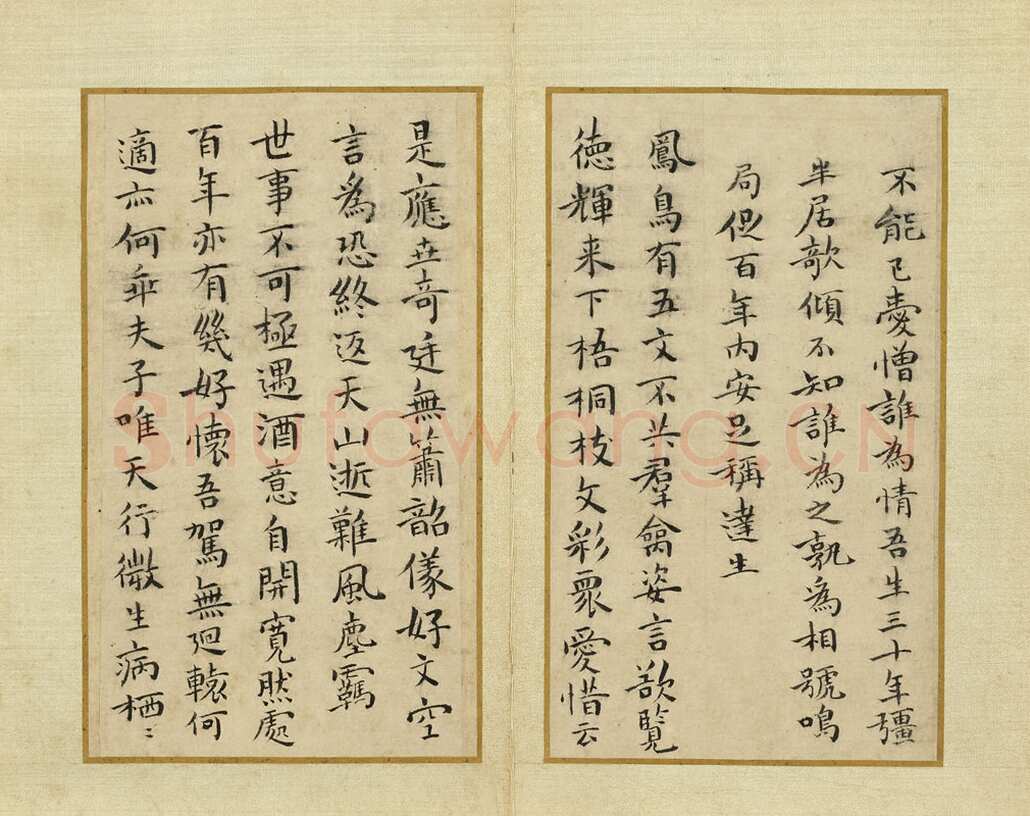 不能已憂憎誰為情吾生三十年彊
半居欹傾不知誰為之孰為相號鳴
局促百年內安足稱達生
鳳鳥有五文不共群禽姿言欲覽
徳輝来下梧桐枝文彩眾愛惜云
是應世奇廷無簫韶儀好文空
言為恐終返天山逝難風塵羈
世事不可極遇酒意自開寬然處
百年亦有幾好懷吾駕無迴轅何
適亦何乖夫子唯天行微生病栖〻
Shufawang.CN